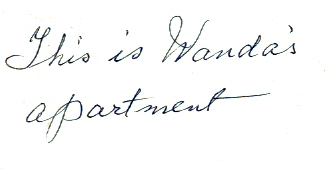 This is Wanda's
apartment